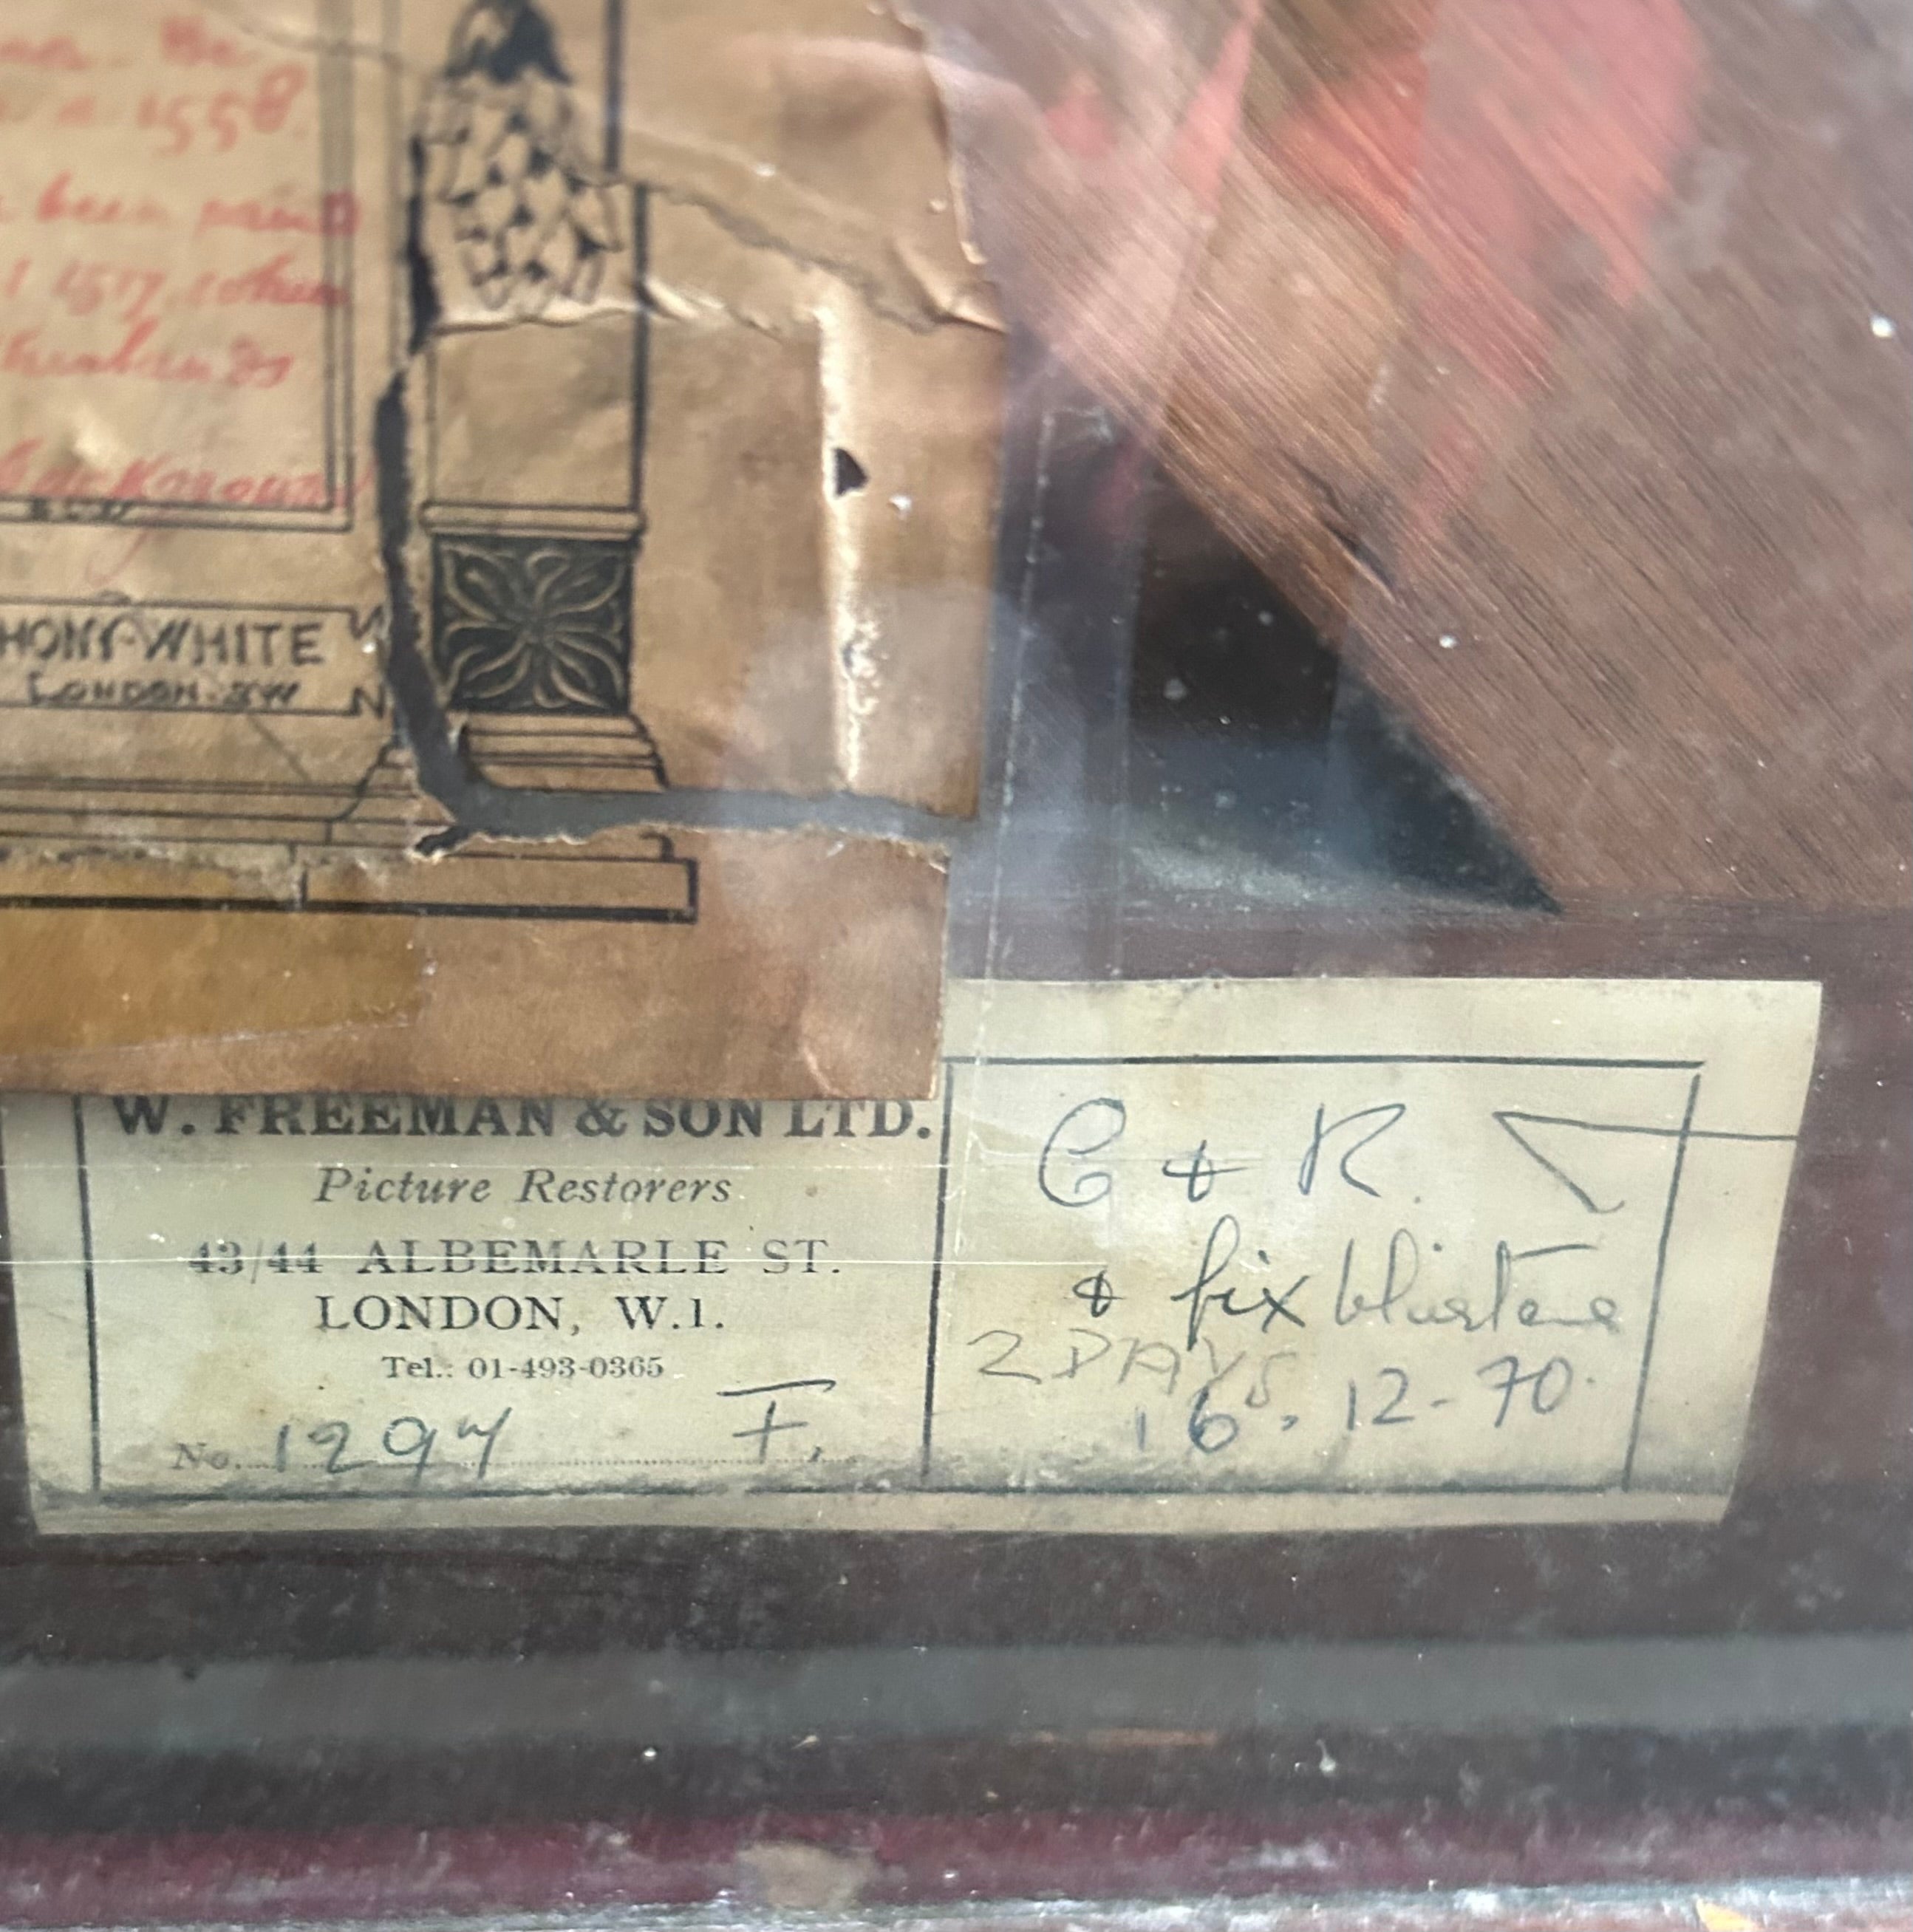 1558
been
1517 when
HONY-WHITE
LONDON. SW
N
W. FREEMAN & SON LTD.
Picture Restorers
43/44 ALBEMARLE ST.
LONDON, W.1.
Tel.: 01-493-0365
No. 1297 F.
C & R.
& fix blisters
2 DAYS
16. 12-70.